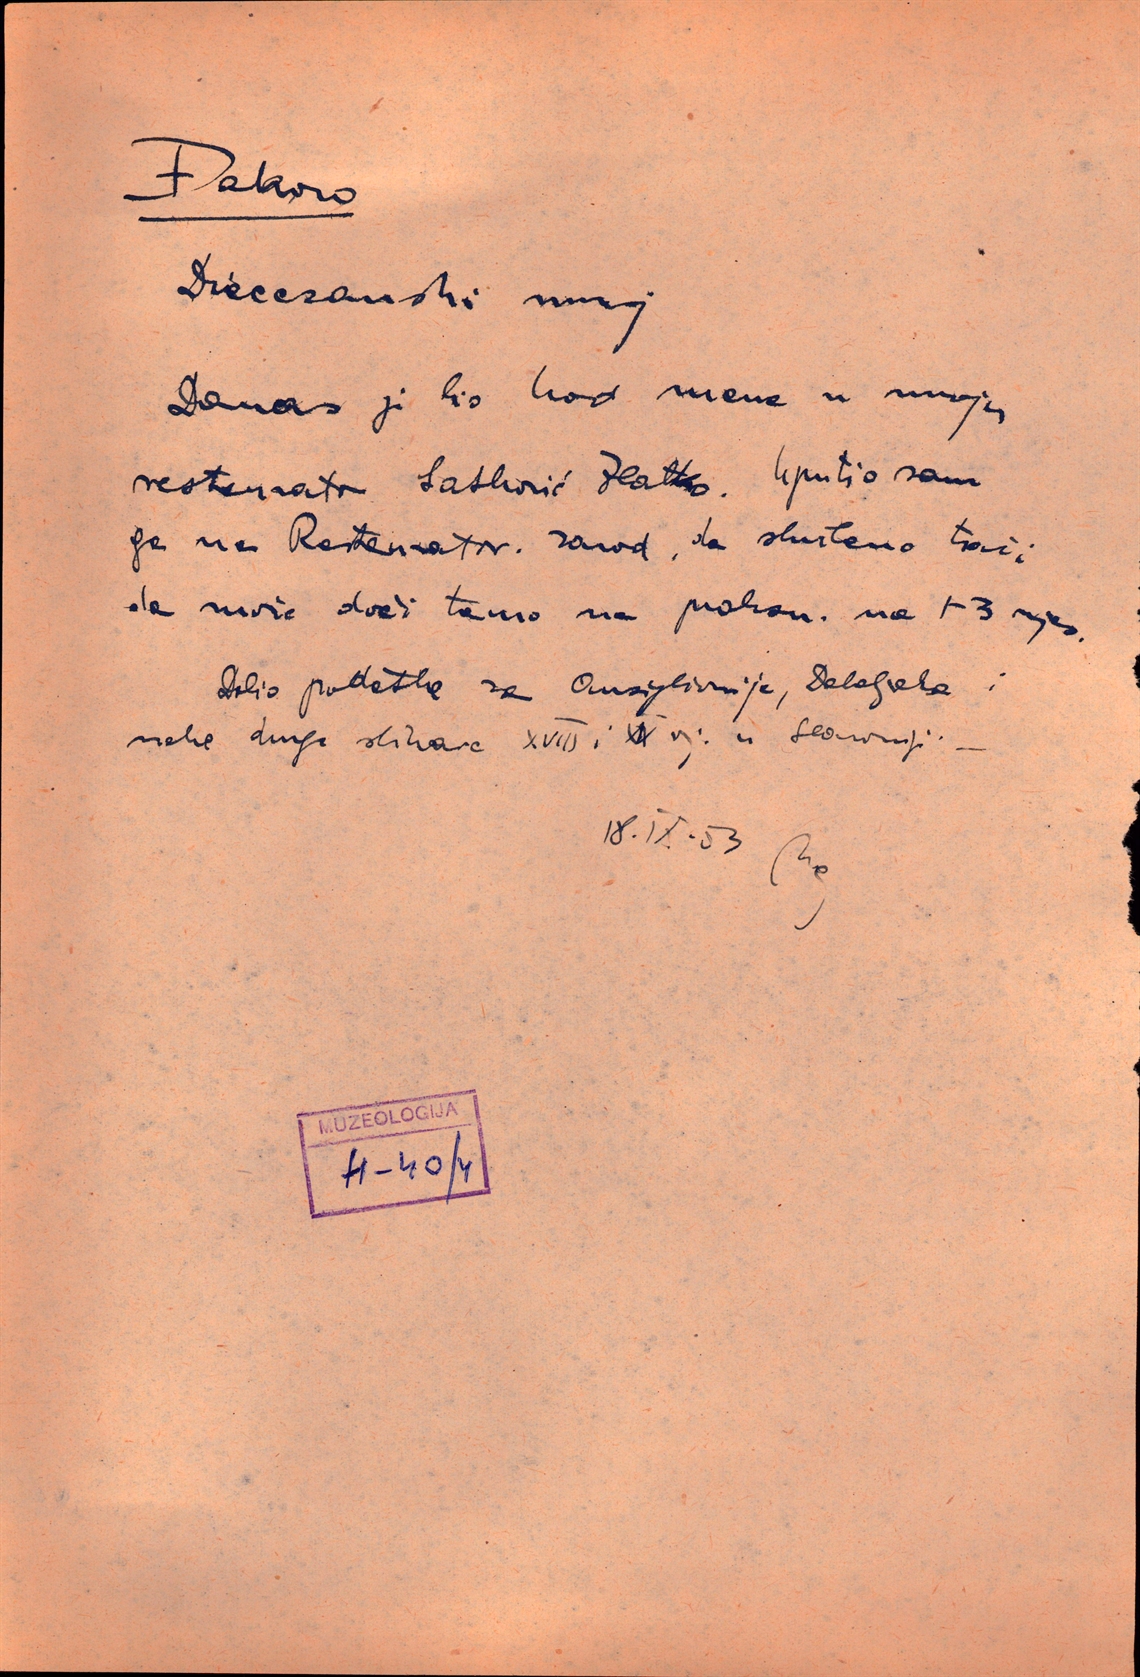 Đakovo
Diecezanski muzej
Danas je bio kod mene u muzeju
restaurator Satković Zlatko. Uputio sam
ga na Restaurator. zavod, da službeno traži
da može doći tamo na praksu. na 1-3 mjes.
Dobio podatke za
neke druge slikare XVIII i XIX vj. u Slavoniji. —
18.IX.53
MUZEOLOGIJA
H-40/4